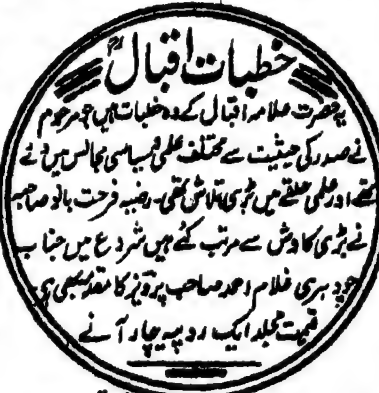 خطبات اقبالؒ
یہ حضرت علامہ اقبال کے وہ خطبات ہیں جو مرحوم
نے صدر کی حیثیت سے مختلف علمی و سیاسی مجالس میں دئے
تھے اور علمی حلقے میں بڑی تلاش تھی۔ رضیہ فرحت بانو صاحبہ
نے بڑی کاوش سے مرتب کئے ہیں شروع میں جناب
چودہری غلام احمد صاحب پرویز کا مقدمہ بھی ہے
قیمت مجلد ایک روپیہ چار آنے